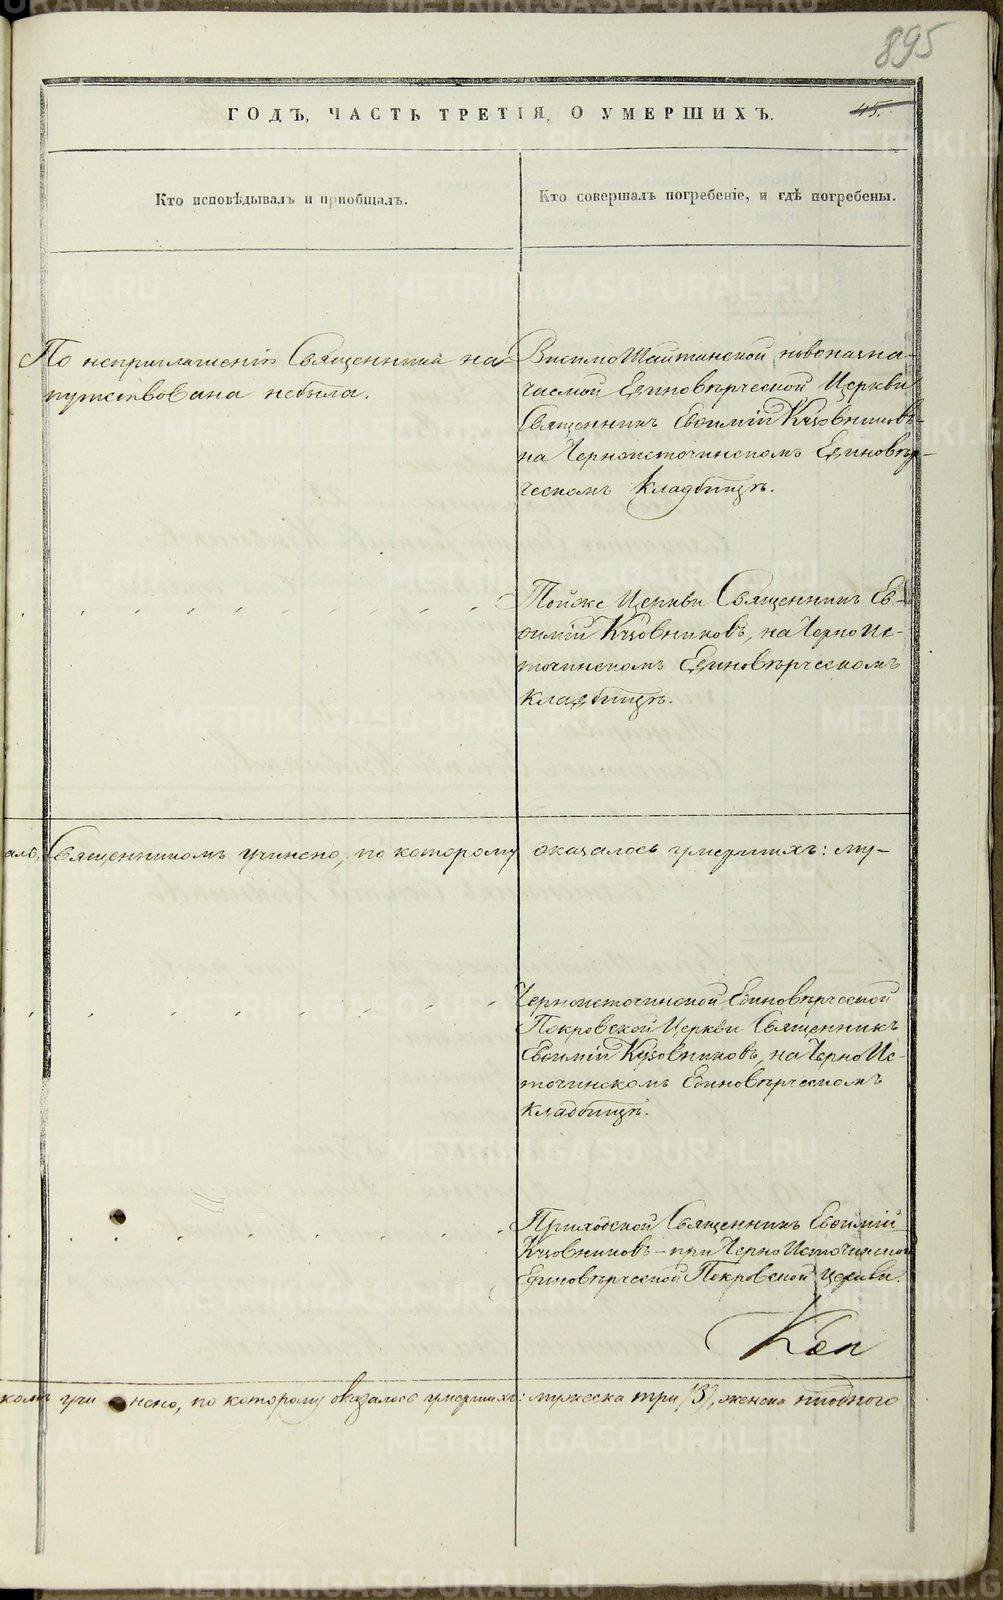 895
ГОДЪ, ЧАСТЬ ТРЕТІЯ, О УМЕРШИХЪ.
45.
Кто исповѣдывалъ и пріобщалъ.
Кто совершалъ погребеніе, и гдѣ погребены.
По неприглашенію Священника на-
путствована небыла.
Висимо Шайтанской новоназна-
чаемой Единовѣрческой Церкви
Священникъ Евѳимій Кузовниковъ-
на Черноисточинскомъ Единовѣр-
ческомъ кладбищѣ.
Тойже Церкви Священникъ Ев-
ѳимій Кузовниковъ, на Черно Ис-
точинскомъ Единовѣрческомъ
кладбищѣ.
Священникомъ учинено, по которому оказалось умершихъ: му-
Черноисточинской Единовѣрческой
Покровской Церкви Священникъ
Евѳимій Кузовниковъ, на Черно Ис-
точинскомъ Единовѣрческомъ
кладбищѣ.
Приходской Священникъ Евѳимій
Кузовниковъ - при Черно Источинской
Единовѣрческой Покровской церкви.
комъ учинено, по которому оказалось умершихъ: мужеска три (3), женска ниодного
METRIKI.GASO-URAL.RU